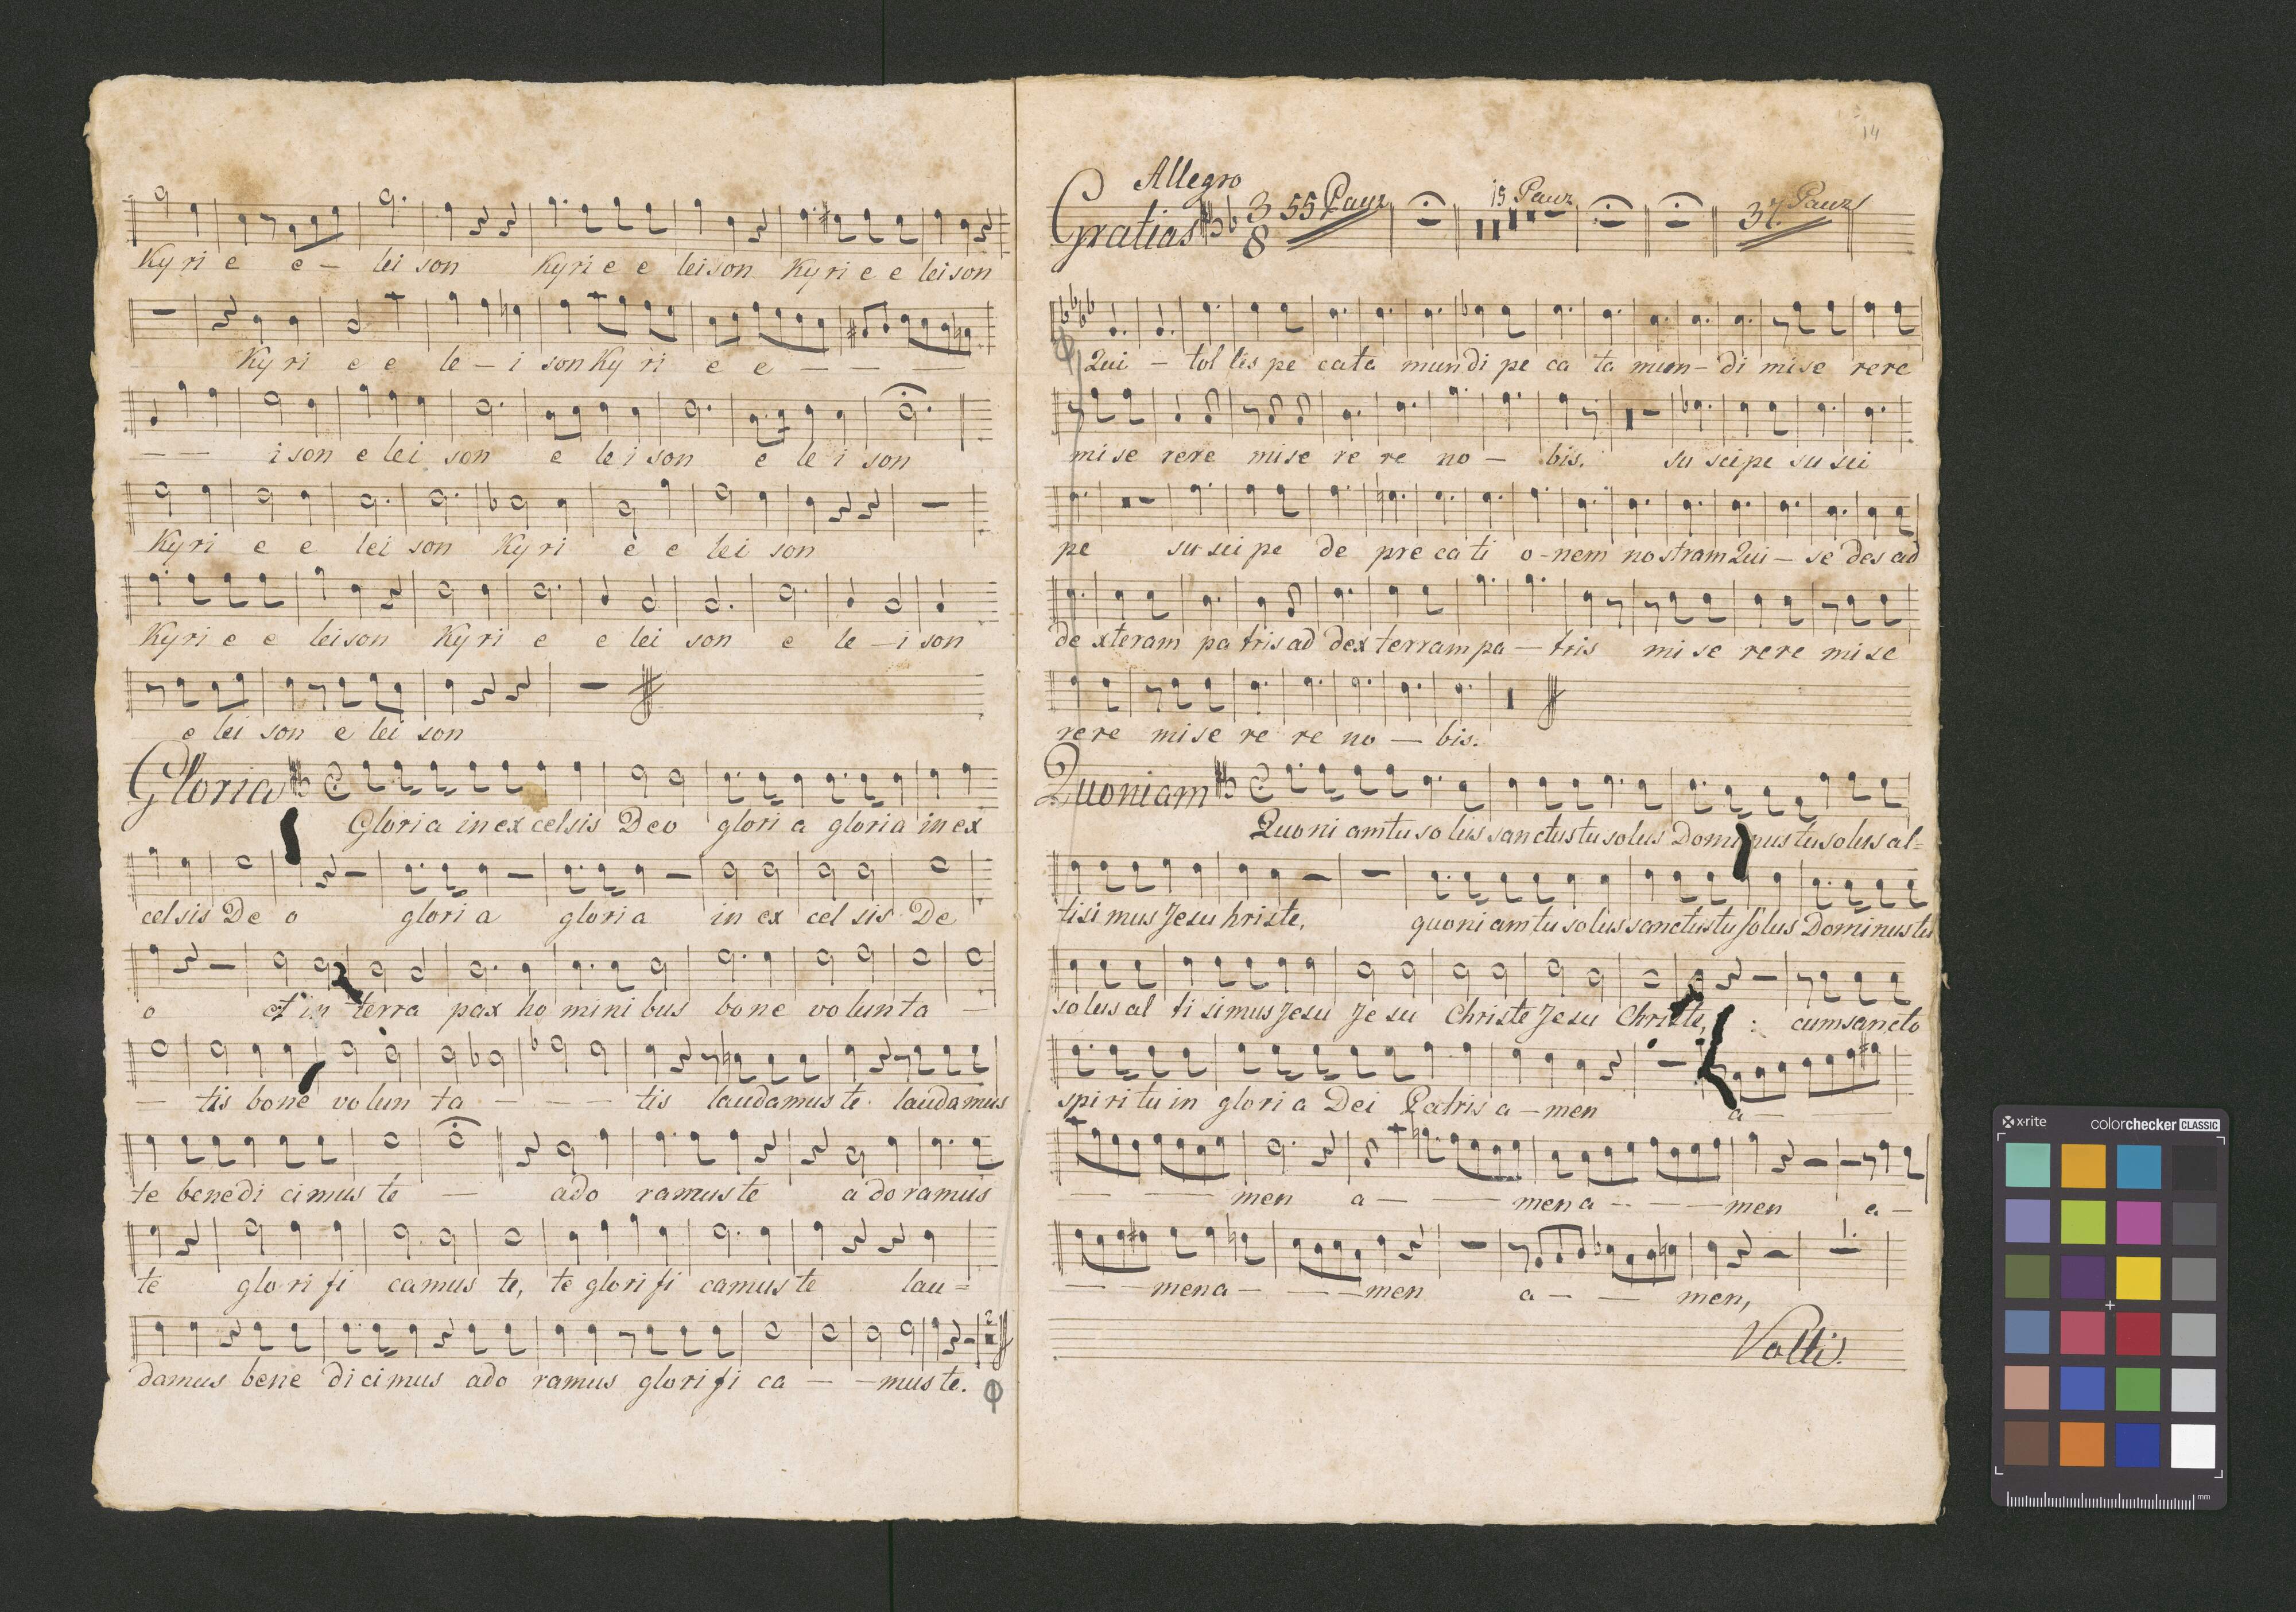 Ky ri e e - lei son Ky ri e e lei son Ky ri e e lei son
Ky ri e e le - i son Ky ri e e - - -
- - i son e lei son e le i son e le i son
Ky ri e e lei son Ky ri e e lei son
Ky ri e e lei son Ky ri e e lei son e le - i son
e lei son e lei son
Gloria
Gloria in ex celsis Deo glori a gloria in ex
celsis De o glori a gloria in ex cel sis De
o et in terra pax ho mini bus bo ne vo lun ta -
- tis bone vo lun ta - - - tis laudamus te laudamus
te benedi cimus te - ado ramus te adoramus
te glo ri fi camus te, te glori fi camus te lau=
damus bene di ci mus ado ramus glori fi ca - - mus te.
14
Allegro
Gratias 3/8 55 Pauz 15 Pauz 37 Pauz
Qui - tol lis pe cata mundi pe ca ta mun - di mise rere
mise rere mise re re no - bis. su scipe su sci
pe su sci pe de pre ca ti o - nem nostram Qui - se des ad
dexteram pa tris ad dex terram pa - tris mi se rere mise
rere mise re re no - bis.
Quoniam
Quoni am tu so lus sanctus tu solus Dominus tu solus al=
tisi mus Jesu hriste, quoni am tu solus sanctus tu solus Dominus tu
solus al ti simus Jesu Je su Christe Jesu Christe, : cum sancto
spiri tu in glori a Dei Patris a - men a -
- - men a - - men a - - - men a -
- - men a - - - men a - - men,
Volti.
x-rite colorchecker CLASSIC
mm